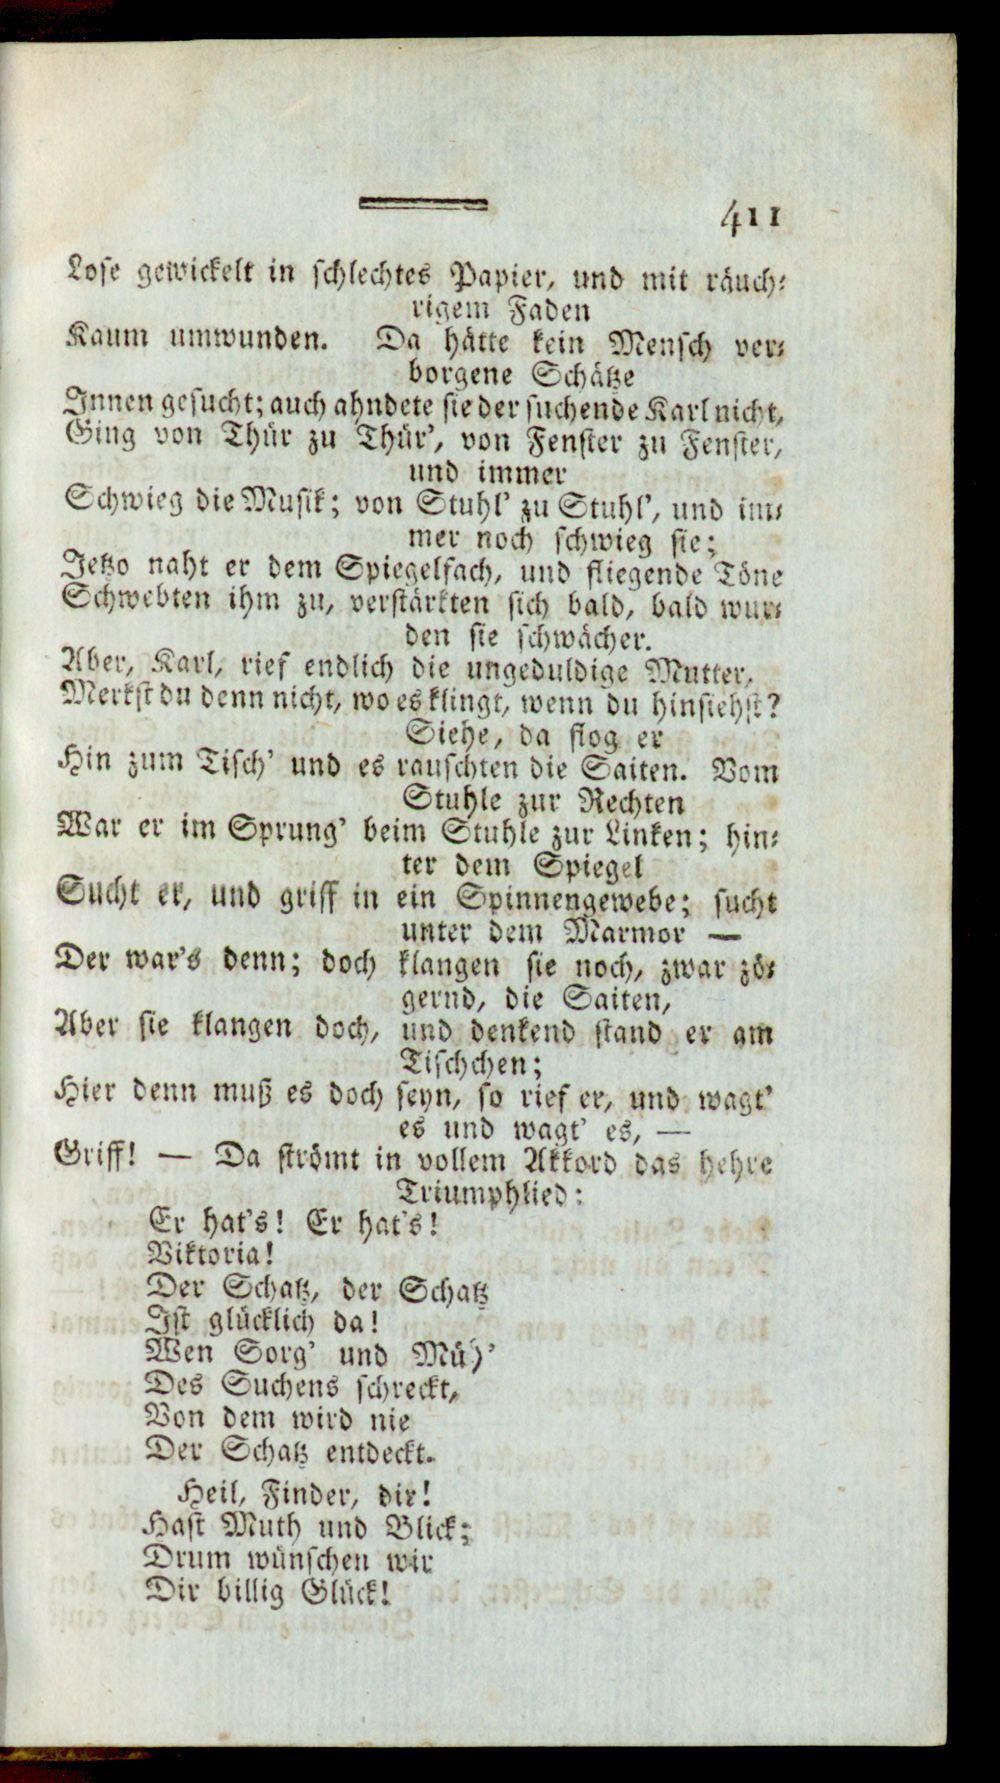 411
Lose gewickelt in schlechtes Papier, und mit räuch-
rigem Faden
Kaum umwunden. Da hätte kein Mensch ver-
borgene Schätze
Innen gesucht; auch ahndete sie der suchende Karl nicht,
Ging von Thür zu Thür', von Fenster zu Fenster,
und immer
Schwieg die Musik; von Stuhl' zu Stuhl', und im-
mer noch schwieg sie;
Jetzo naht er dem Spiegelfach, und fliegende Töne
Schwebten ihm zu, verstärkten sich bald, bald wur-
den sie schwächer.
Aber, Karl, rief endlich die ungeduldige Mutter,
Merkst du denn nicht, wo es klingt, wenn du hinsiehst?
Siehe, da flog er
Hin zum Tisch' und es rauschten die Saiten. Vom
Stuhle zur Rechten
War er im Sprung' beim Stuhle zur Linken; hin-
ter dem Spiegel
Sucht er, und griff in ein Spinnengewebe; sucht
unter dem Marmor —
Der war's denn; doch klangen sie noch, zwar zö-
gernd, die Saiten,
Aber sie klangen doch, und denkend stand er am
Tischchen;
Hier denn muß es doch seyn, so rief er, und wagt'
es und wagt' es, —
Griff! — Da strömt in vollem Akkord das hehre
Triumphlied:
Er hat's! Er hat's!
Viktoria!
Der Schatz, der Schatz
Ist glücklich da!
Wen Sorg' und Müh'
Des Suchens schreckt,
Von dem wird nie
Der Schatz entdeckt.
Heil, Finder, dir!
Hast Muth und Blick;
Drum wünschen wir
Dir billig Glück!